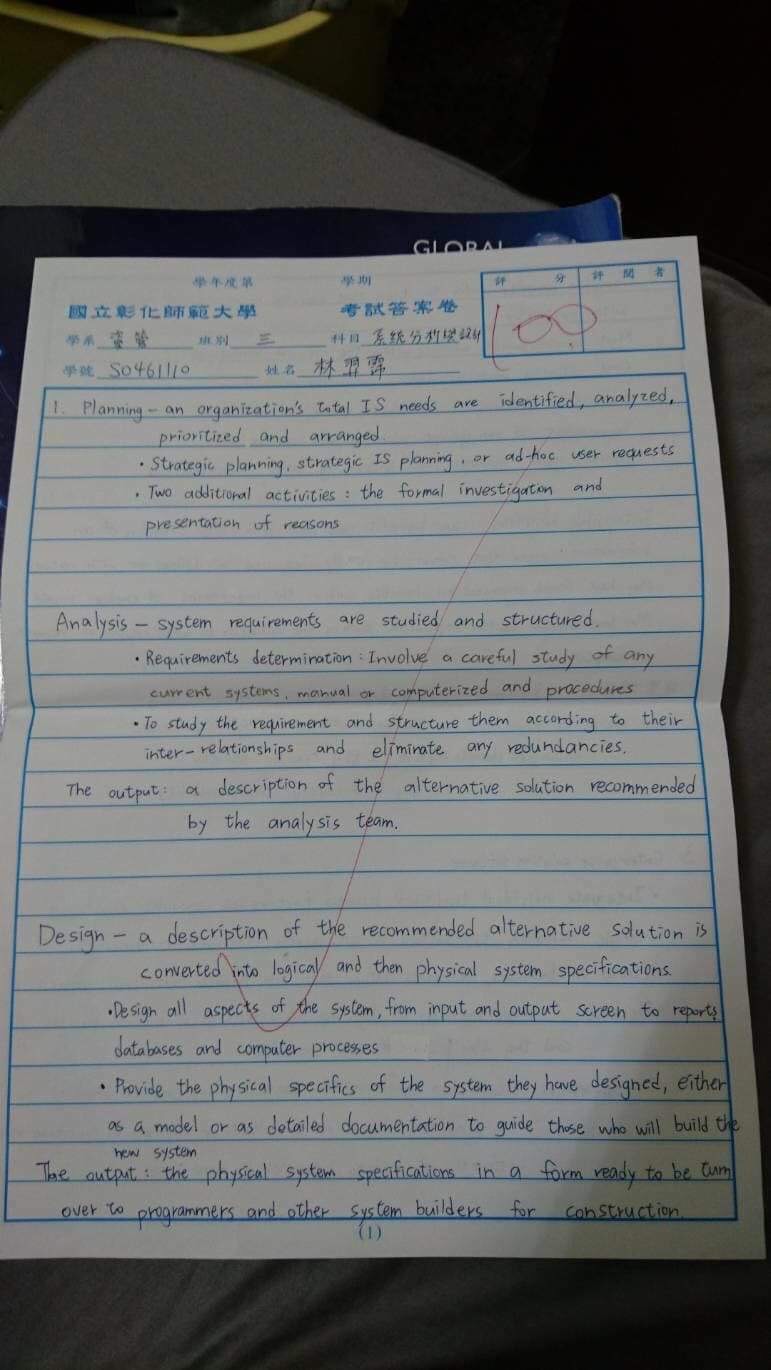 GLOBAL
學年度第 學期
國立彰化師範大學 考試答案卷
評分 評閱者
100
學系 資管 班別 三 科目 系統分析與設計
學號 S0461110 姓名 林羿
1. Planning – an organization's total IS needs are identified, analyzed,
prioritized and arranged.
• Strategic planning, strategic IS planning, or ad-hoc user requests
• Two additional activities : the formal investigation and
presentation of reasons
Analysis – system requirements are studied and structured.
• Requirements determination : Involve a careful study of any
current systems, manual or computerized and procedures
• To study the requirement and structure them according to their
inter-relationships and eliminate any redundancies.
The output : a description of the alternative solution recommended
by the analysis team.
Design – a description of the recommended alternative solution is
converted into logical and then physical system specifications.
• Design all aspects of the system, from input and output screen to reports,
databases and computer processes
• Provide the physical specifics of the system they have designed, either
as a model or as detailed documentation to guide those who will build the
new system
The output : the physical system specifications in a form ready to be turn
over to programmers and other system builders for construction.
(1)